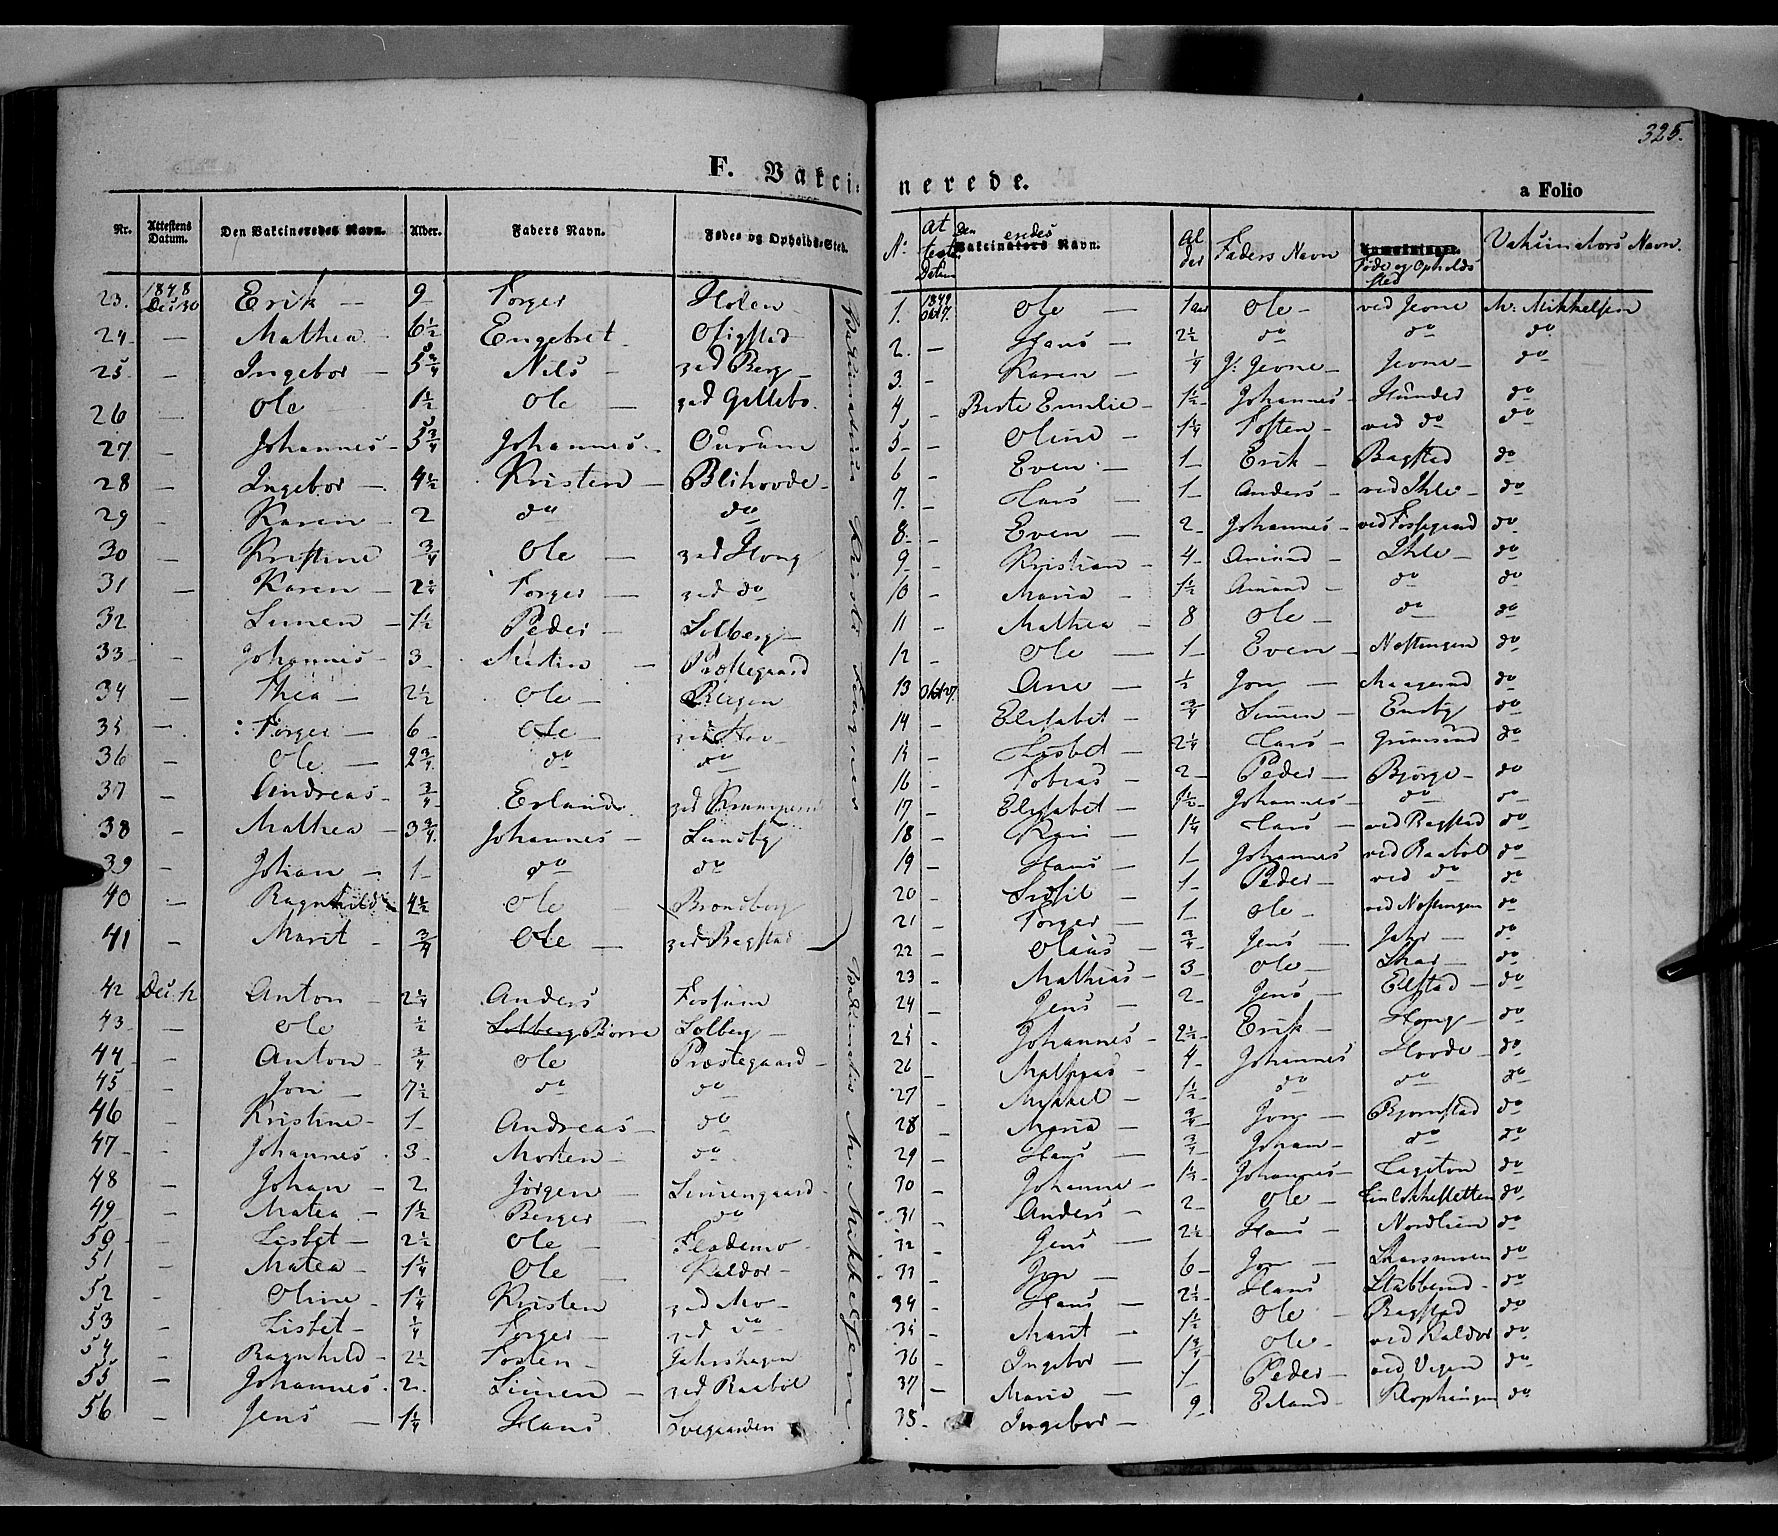 325.
F. Vakcinerede.
a Folio
Nr. Attestens Datum. Den Vakcineredes Navn. Alder. Faders Navn. Fødes og Opholds-Sted.
23. 1848 Dec 30 Erik — 9 Torger Holen
24 — Mathea — 6½ Engebret Oligstad
25 — Ingebor — 5¾ Nils — ved Berg
26 — Ole — 1½ Ole — ved Gillebo
27 — Johannes — 5¾ Johannes Ourum
28 — Ingebor — 4½ Kristen — Blihovde
29 — Karen — 2 do do
30 — Kristine ¾ Ole — ved Hong
31 — Karen — 2¼ Torger — ved do
32 Simen — 1½ Peder — Solberg
33 — Johannes — 3 Præstegaard
34 — Thea — 2½ Ole —
35 — Torger — 6 Ole
36 — Ole — 2¾ do do
37 — Andreas — ¾ Erland
38 — Mathea — 3¾ Johannes — Lunsby
39 — Johan — 1 do do
40 — Ragnhild 4½ Ole Brondberg
41 — Marit — ¾ Ole — ved Bagstad
42 Dec. 12 Anton — 2¼ Anders Fossum
43 — Ole ½ Solberg Børre Solberg
44 — Anton — ¾ Ole Præstegaard
45 — Jon — 7½ do do
46 — Kristine — 1 Andreas — do
47 — Johannes 3 Morten — do
48 — Johan — 2 Jörgen — Simengaard
49 — Matea 1½ Berger — do
50 — Lisbet — 2½ Ole — Flademo
51 — Matea — 1¼ Ole Kaldor
52 — Oline — 1¼ Kristen ved Mo
53 — Lisbet — ¼ Torger — ved do
54 — Ragnhild — 2½ Tosten — Jahrshagen
55 — Johannes 2 Simen — ved Raabøl
56 — Jens — 1¼ Hans
M: Mikkelsen
No Attestens Datum Den Vakcinerendes Navn. Alder Faders Navn Føde og Opholds Sted Vakcinators Navn.
1. 1849 Okt 7. Ole — 1 aar Ole — ved Jevne M: Mikkelsen
2. — Hans — 2½ do do do
3. — Karen — ¼ J: Jevne — Jevne — do
4 — Berte Emilie — 1½ Johannes — Hunder do
5 — Oline — 1¼ Tosten — ved do do
6 — Even — 1 Erik — Bagstad do
7. — Hans — 1 Anders — ved Ihle — do
8 — Even — 2 Johannes — ved Fossegaard do
9 — Kristian — 4 Amund — Ihle — do
10 — Maria — 1½ Amund — do do
11 — Mathea — 8 Ole — do do
12 — Ole — 1 Even — Nostingen do
13 Okt 27. Ane — ½ Jon — Maagerud do
14 — Elisabet — ¾ Simen — Enoby do
15 — Lisbet — 2¼ Lars — Grimsrud do
16 — Tobias — 2 Peder — Björge — do
17 — Elisabet — 1½ Johannes — do do
18 — Kari — 1¼ Lars — ved Bagstad do
19 — Hans — 1 Johannes ved Raabøl do
20 — Sidsil — 1 Peder — ved do do
21 — Torger — 1 Ole — ved Nostingen do
22 — Olaus — ¾ Jens — Jahr — do
23 — Mathias — 3 Ole — Skar — do
24 — Jens — 2 Jens — Elstad — do
25 — Johannes — 2½ Erik — Hong — do
26 — Mathias — 4 Johannes Hovde — do
27 — Mikkel — 1½ do do do
28 — Maria — ¾ Jon — Bjornstad do
29 — Hans — ¾ Johan — do do
30 — Johanne — 1½ Johannes — do
31 — Anders — 2 Ole — do
32 — Jens — 2½ Hans — Nordlien do
33 — Jon — 6 Jon — Skarsmoen do
34 — Hans — 2½ Hans Stabberud — do
35 — Marit — 1½ Ole — Bagstad do
36 — Ingebor — 1¾ Ole — ved Kaldor do
37 — Maria — 1 Peder — ved Vigen do
38 — Ingebor — 9 Erland — Klophaugen do